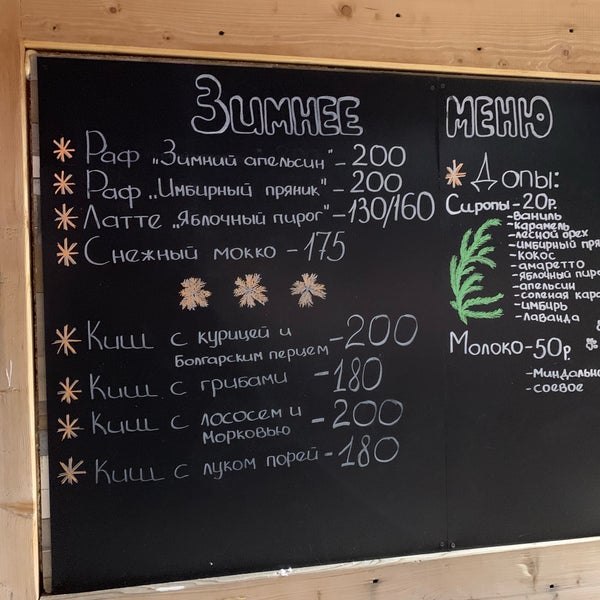 Зимнее меню
Раф „Зимний апельсин" - 200
Раф „Имбирный пряник" - 200
Латте „Яблочный пирог" - 130/160
Снежный мокко - 175
Киш с курицей и
Болгарским перцем - 200
Киш с грибами - 180
Киш с лососем и
морковью - 200
Киш с луком порей - 180
Допы:
Сиропы - 20р.
- ваниль
- карамель
- лесной орех
- имбирный пря
- кокос
- амаретто
- яблочный пиро
- апельсин
- соленая кара
- имбирь
- лаванда
Молоко - 50р.
- миндально
- соевое